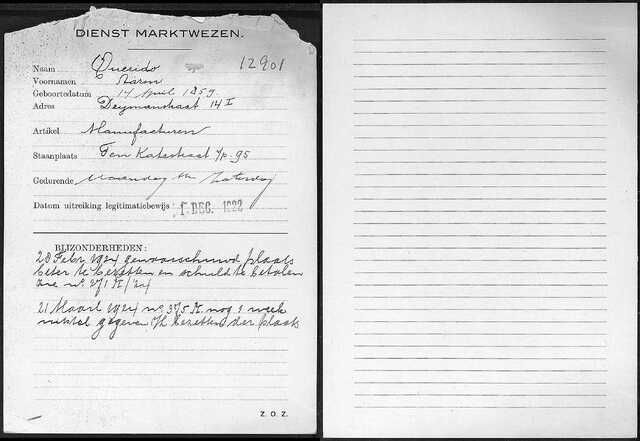 DIENST MARKTWEZEN.
Naam Querido 12901
Voornamen Aaron
Geboortedatum 14 April 1859
Adres Deymanstraat 14 I
Artikel Manufacturen
Staanplaats Ten Katestraat t/o 95
Gedurende Maandag t/m Zaterdag
Datum uitreiking legitimatiebewijs 1 DEC. 1922
BIJZONDERHEDEN:
28 Febr. 1924 gewaarschuwd plaats
beter te bezetten en schuld te betalen
zie no 271 M/24
21 Maart 1924 no 375 M. nog 1 week
uitstel gegeven bezetten der plaats
Z. O. Z.